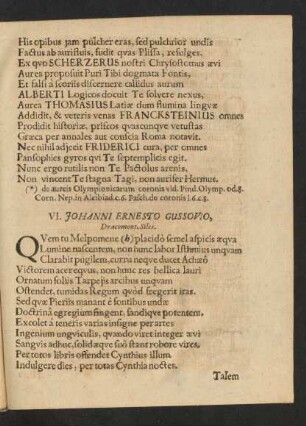 His opibus jam pulcher eras, sed pulchrior undis
Factus ab auriflvis, fudit qvas Plissa, refulges.
Ex qvo SCHERZERUS nostri Chrysostomus ævi
Aures proposuit Puri Tibi dogmata Fontis,
Et falsi à scoriis discernere callidus aurum
ALBERTI Logicos docuit Te solvere nexus,
Aurea THOMASIUS Latiæ dum flumina lingvæ
Addidit, & veteris venas FRANCKSTEINIUS omnes
Prodidit historiæ, priscos qvascunqve vetustas
Græca per annales aut conscia Roma notavit.
Nec nihil adjecit FRIDERICI cura, per omnes
Pansophies gyros qvi Te septemplicis egit.
Nunc ergo rutilis non Te Pactolus arenis,
Non vincent Te stagna Tagi, non aurifer Hermus.
(*) de aureis Olympionicarum coronis vid. Pind. Olymp. od. 8.
Corn. Nep. in Alcibiad. c. 6. Pasch. de coronis l. 6. c. 3.
VI. JOHANNI ERNESTO GUSSOVIO,
Dracomont. Siles.
QVem tu Melpomene (b) placidô semel aspicis æqva
Lumine nascentem, non hunc labor Isthmius unqvam
Clarabit pugilem, curru neqve ducet Achæô
Victorem acer eqvus, non hunc res bellica lauri
Ornatum foliis Tarpejis arcibus unqvam
Ostendet, tumidas Regum qvod fregerit iras.
Sed qvæ Pieriis manant è fontibus undæ
Doctrinâ egregium fingent, fandiqve potentem.
Excolet à teneris varias insigne per artes
Ingenium ungviculis, qvando viret integer ævi
Sangvis adhuc, solidæqve suô stant robore vires.
Per totos libris offendet Cynthius illum
Indulgere dies, per totas Cynthia noctes.
Talem